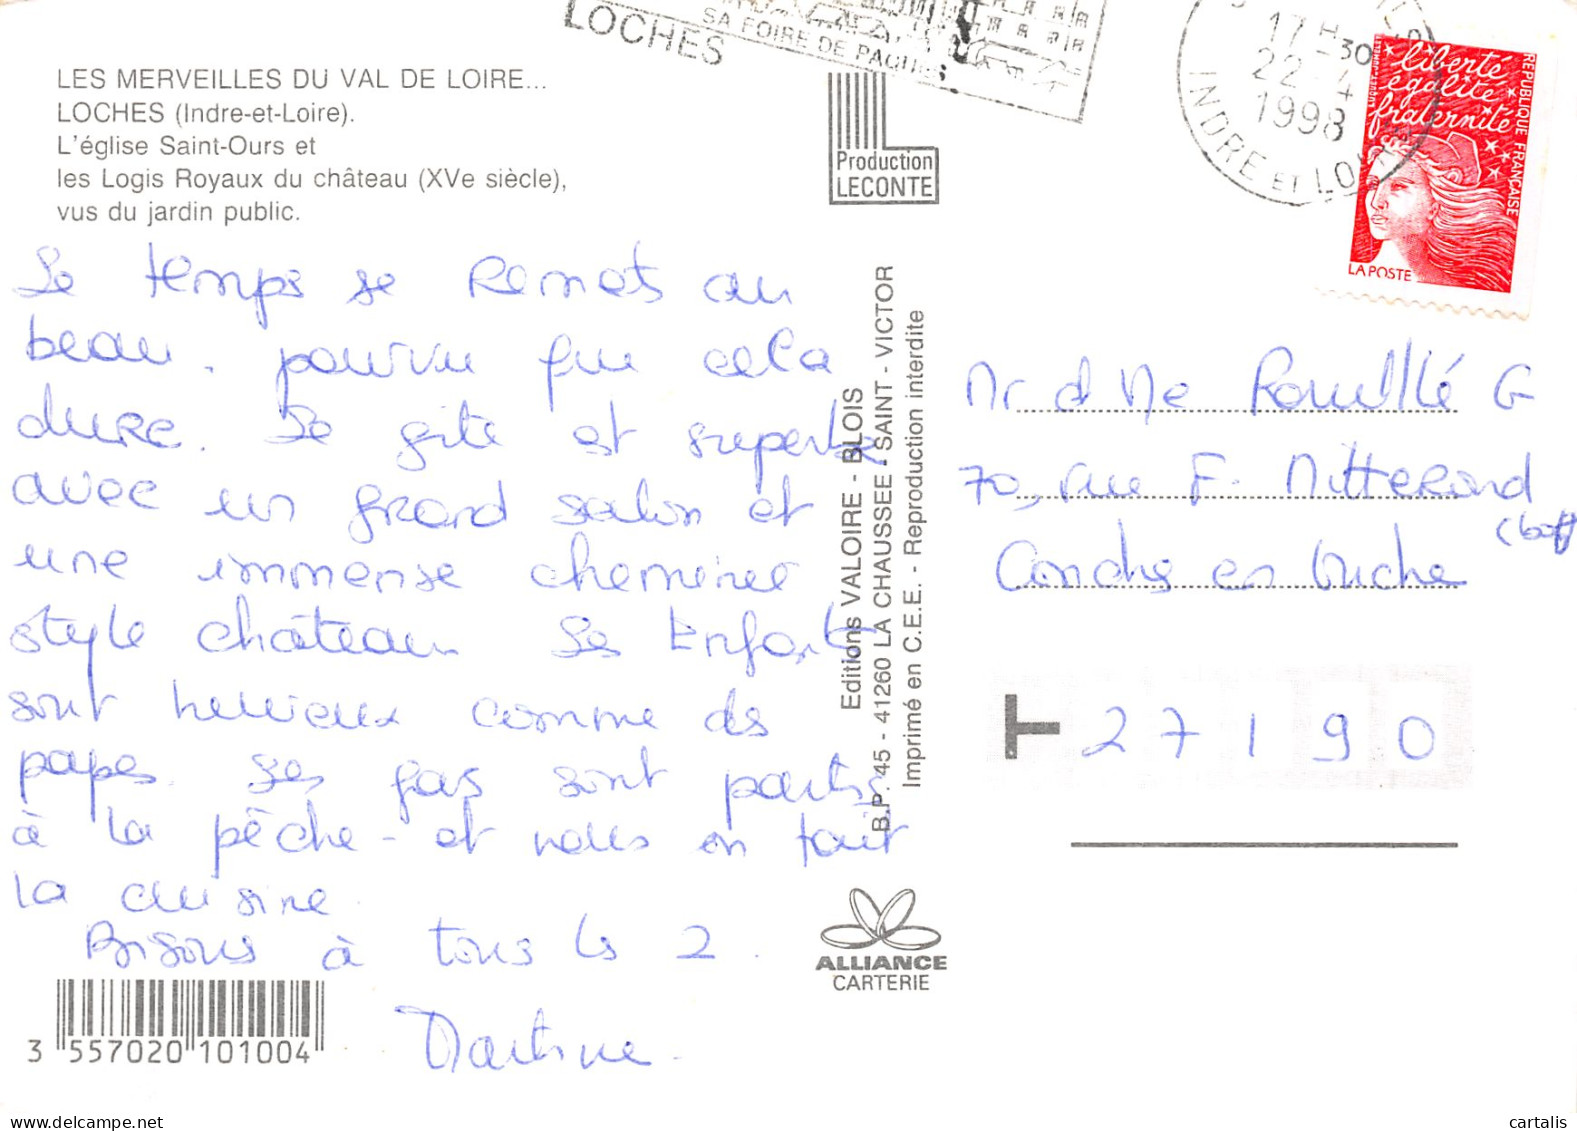 LOCHES
SA FOIRE DE PAQUES
17 H 30
22 - 4
1998
INDRE ET LOIRE
liberté
égalité
fraternité
REPUBLIQUE FRANÇAISE
LA POSTE
LES MERVEILLES DU VAL DE LOIRE...
LOCHES (Indre-et-Loire).
L'église Saint-Ours et
les Logis Royaux du château (XVe siècle),
vus du jardin public.
Production
LECONTE
Le temps se remets au
beau. pourvu que cela
dure. Le gite est superbe
avec un grand salon et
une immense cheminée
style château Les Enfants
sont heureux comme des
papes. Les gas sont partis
à la pêche - et nous on fait
la cuisine.
Bisous à tous les 2.
Martine.
Editions VALOIRE - BLOIS
B.P. 45 - 41260 LA CHAUSSEE - SAINT - VICTOR
Imprimé en C.E.E. - Reproduction interdite
Mr et Me Rouillé G
70, rue F. Mitterand
(bof)
Conches en Ouche
27190
ALLIANCE
CARTERIE
3 557020 101004
delcampe.net
cartalis